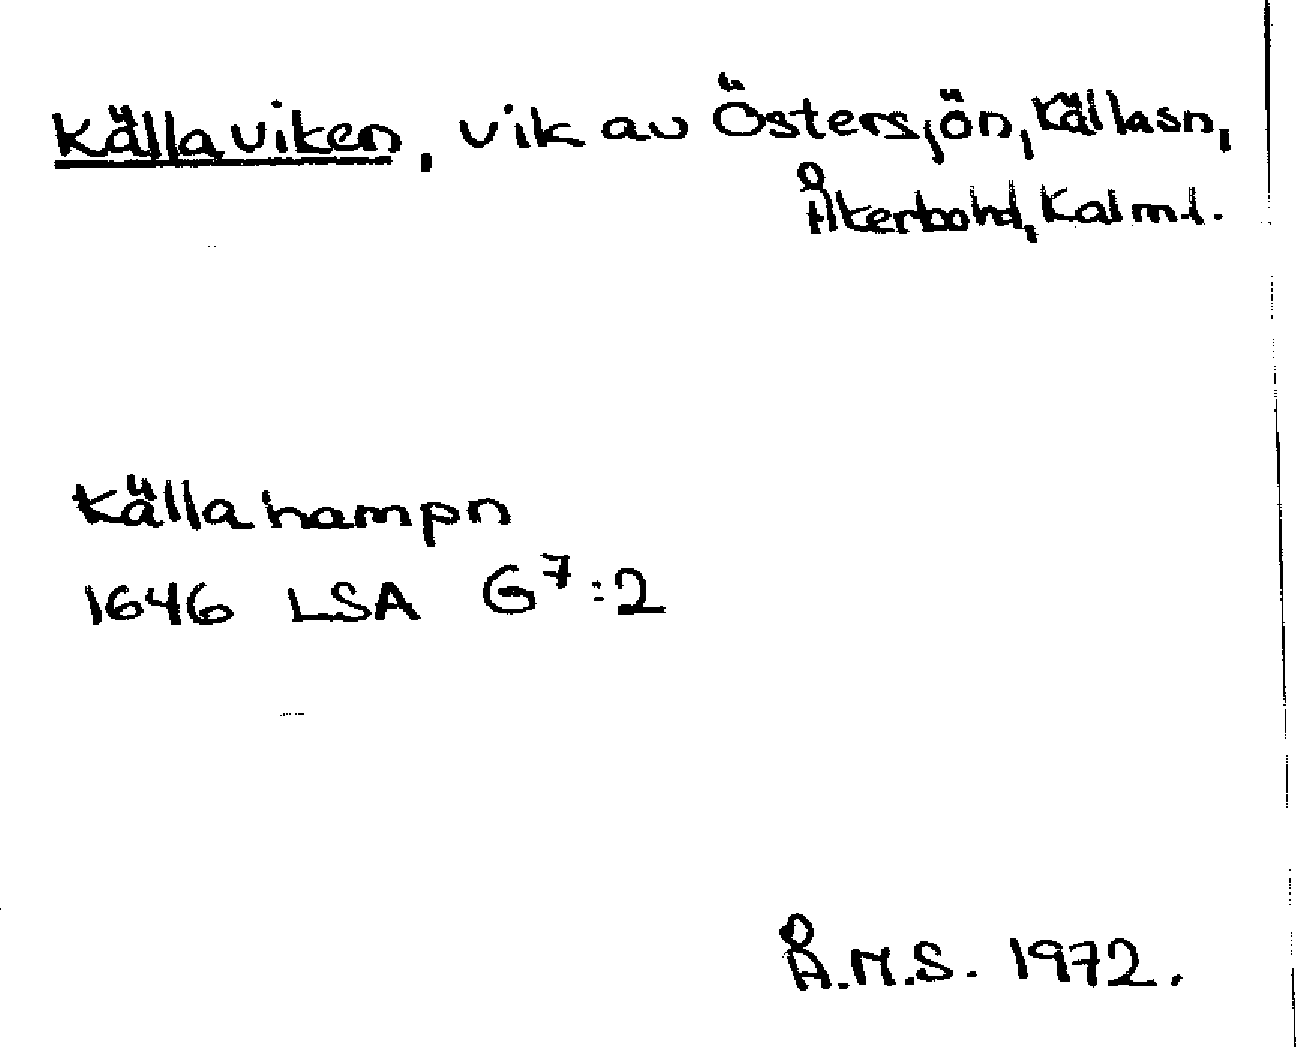 Källaviken, vik av Östersjön, Källasn,
Åkerbohd, Kalm.l.
Källa hampn
1646 LSA G7:2
Å.M.S. 1972.